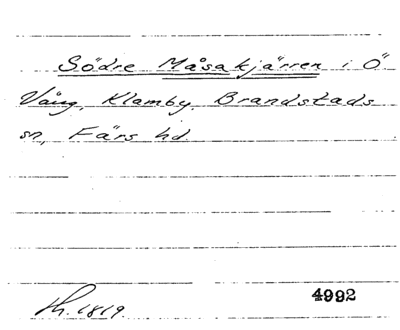 Södre Måsakjärren i Ö
Vång, Klamby, Brandstads
sn, Färs hd
4992
Th. 1819